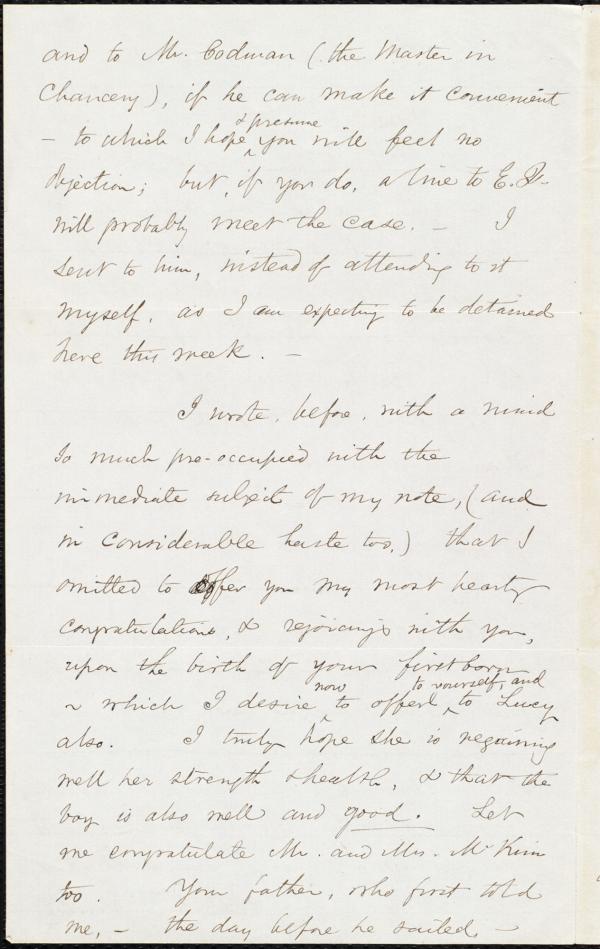 and to Mr. Codman (the Master in
Chancery), if he can make it convenient
– to which I hope & presume you will feel no
objection; but, if you do, a line to E. Q.
will probably meet the case. – I
sent to him, instead of attending to it
myself, as I am expecting to be detained
here this week. –
I wrote, before, with a mind
so much pre-occupied with the
immediate subject of my note, (and
in considerable haste too,) that I
omitted to offer you my most hearty
congratulations, & rejoicings with you,
upon the birth of your firstborn
~ which I desire now to offer to yourself, and to Lucy
also. I truly hope she is regaining
well her strength & health, & that the
boy is also well and good. Let
me congratulate Mr. and Mrs. McKim
too. Your father, who first told
me, – the day before he sailed –